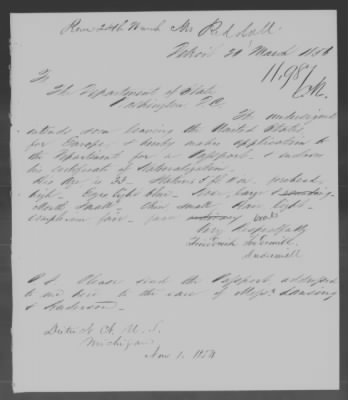 Detroit 20 March 1856
11,987
To
The Department of State
Washington D.C.
The undersigned
intends soon leaving the United States
for Europe, & hereby makes application to
the Department for a Passport & encloses
his certificate of Naturalization.
His Age is 32. Stature 5 ft forehead
high. Eyes light blue. Nose large
Mouth small. Chin small. Hair light.
complexion fair. face oval
Very Respectfully
Frederick
P.S. Please send the Passport addressed
to me here to the care of Messrs
& Anderson.
Michigan
Nov 1. 1854